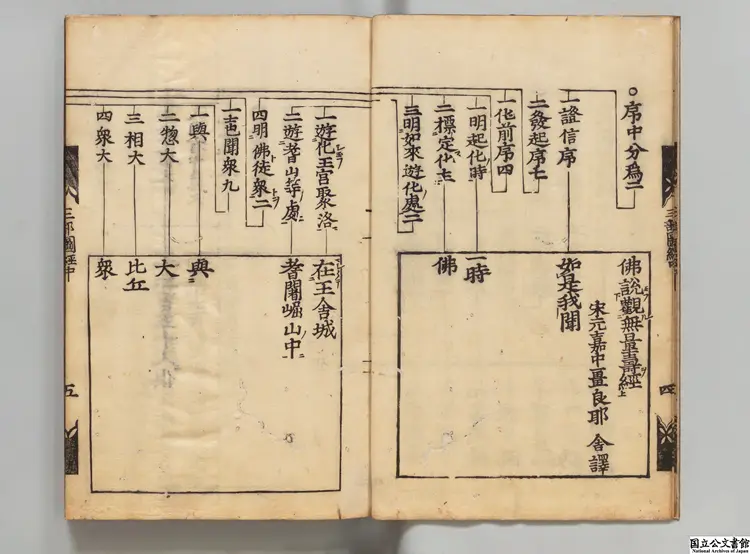 ○序中分爲二
一證信序
二發起序七
一化前序四
一明起化時
二標定化主
三明如來遊化處二
佛說觀無量壽經
宋元嘉中畺良耶舍譯
如是我聞
一時
佛
四
一遊化王宮聚洛
二遊耆山等處
四明佛徒衆二
一聲聞衆九
一與
二惣大
三相大
四衆大
在王舍城
耆闍崛山中
與
大
比丘
衆
三部
經中
五
国立公文書館
National Archives of Japan